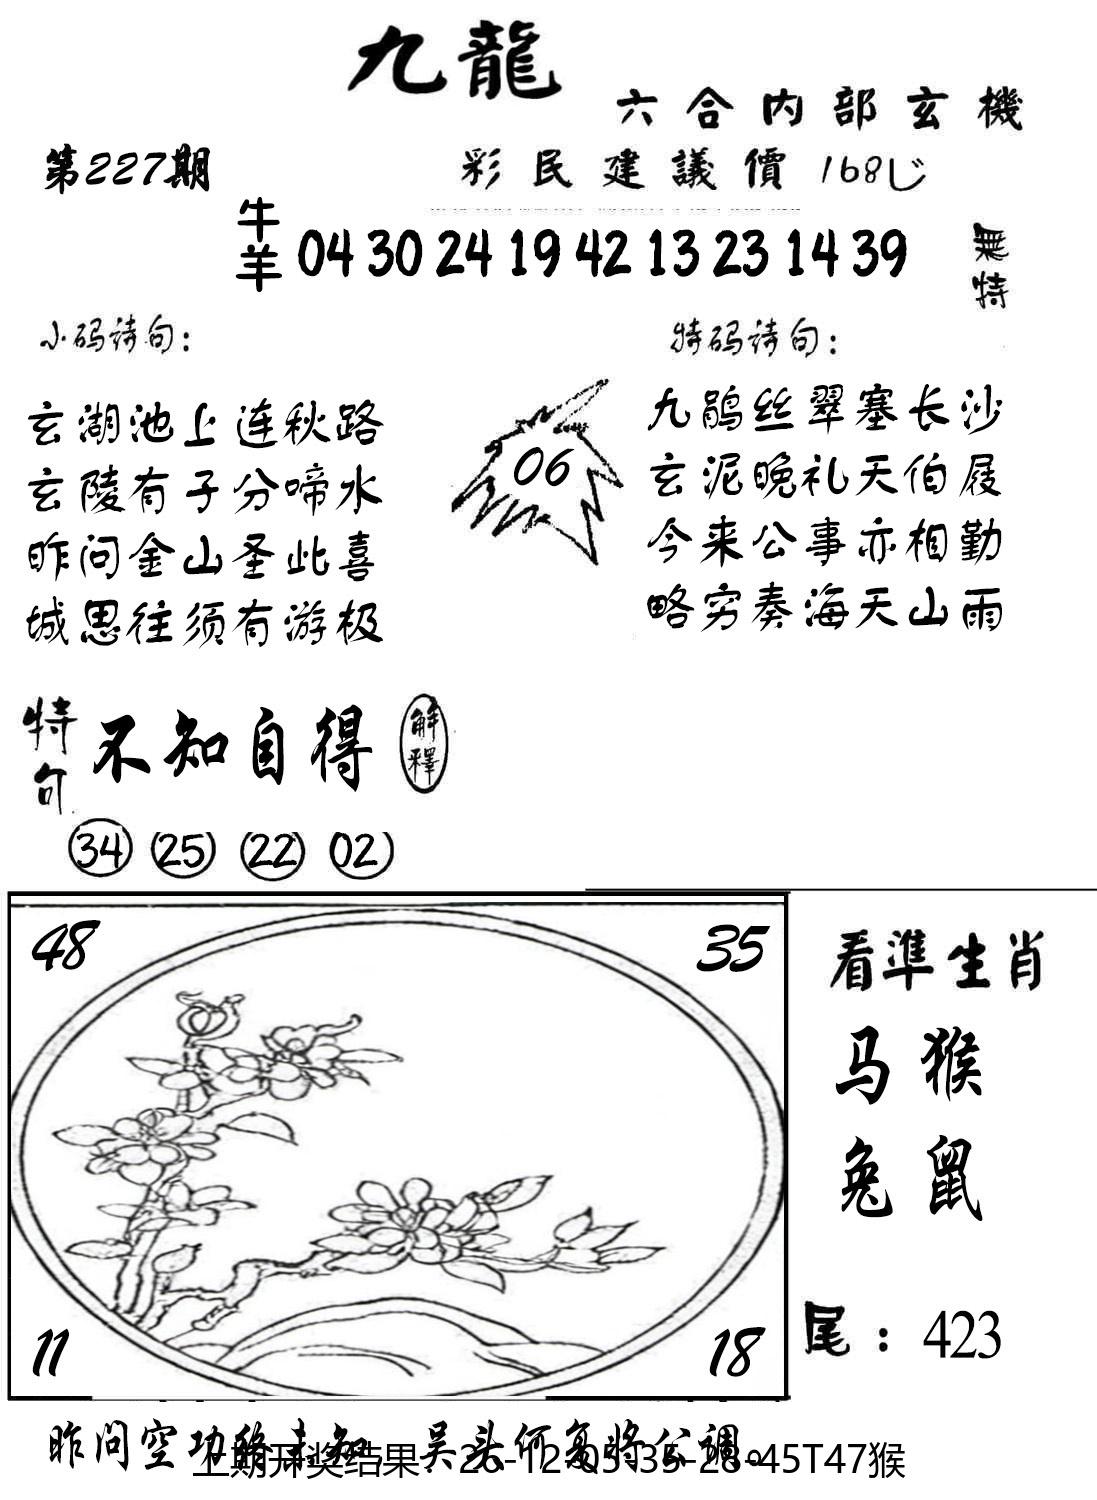 九龍
六合内部玄機
第227期
彩民建議價 168
牛羊 04 30 24 19 42 13 23 14 39 無特
小码诗句：
玄湖池上连秋路
玄陵有子分啼水
昨问金山圣此喜
城思往须有游极
06
特码诗句：
九鹃丝翠塞长沙
玄泥晚礼天伯屐
今来公事亦相勤
略穷奏海天山雨
特句 不知自得 解釋
34 25 22 02
48 35
11 18
看準生肖
马猴
兔鼠
尾：423
昨问空功 吴头何复将公调。
上期开奖结果：26-12-05-35-28-45T47猴